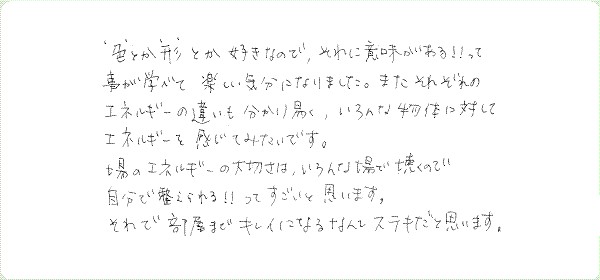 "色"とか"形"とか好きなので、それに意味がある!!って
事が学べて楽しい気分になりました。またそれぞれの
エネルギーの違いも分かり易く、いろんな物体に対して
エネルギーを感じてみたいです。
場のエネルギーの大切さは、いろんな場で聴くので
自分で整えられる!!ってすごいと思います。
それで部屋までキレイになるなんてステキだと思います。